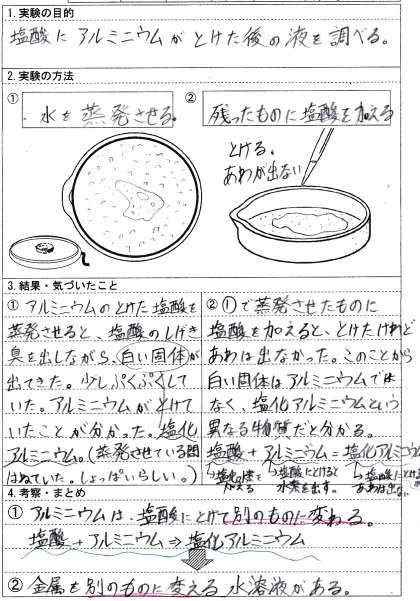 1. 実験の目的
塩酸にアルミニウムがとけた後の液を調べる。
2. 実験の方法
① 水を蒸発させる。
② 残ったものに塩酸を加える
とける。
あわが出ない
3. 結果・気づいたこと
① アルミニウムのとけた塩酸を
蒸発させると、塩酸のしげき
臭を出しながら、白い固体が
出てきた。少しぷくぷくして
いた。アルミニウムがとけて
いたことが分かった。塩化
アルミニウム。(蒸発させている間
はねていた。しょっぱいらしい。)
② ①で蒸発させたものに
塩酸を加えると、とけたけれど
あわは出なかった。このことから
白い固体はアルミニウムでは
なく、塩化アルミニウムという
異なる物質だと分かる。
塩酸+アルミニウム=塩化アルミニウム
加える
塩酸にとけると
水素を出す。
塩酸にとけ
あわは出ない
4. 考察・まとめ
① アルミニウムは、塩酸にとけて別のものに変わる。
塩酸+アルミニウム⇒塩化アルミニウム
② 金属を別のものに変える水溶液がある。